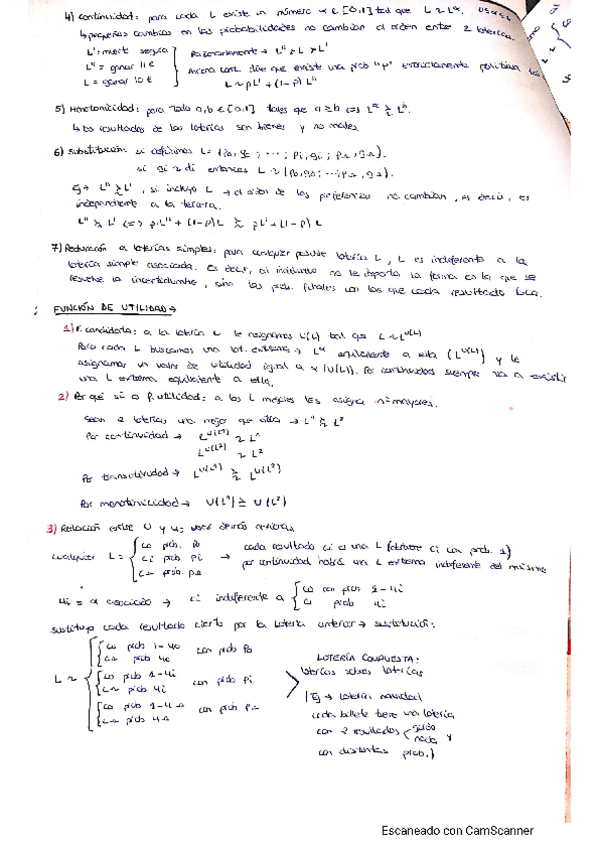 4) Continuidad: para cada L existe un número α ∈ [0,1] tal que L ~ Lᵅ.
↳ pequeños cambios en las probabilidades no cambian el orden entre 2 loterías.
L': muerte segura
L'' = ganar 11 €
L = ganar 10 €
Razonamiento → L'' ≿ L ≿ L'
que existe una prob "p" estrictamente positiva
L ~ pL' + (1-p) L''
5) Monotonicidad: para todo a, b ∈ [0,1] tales que a ≥ b <=> Lᵃ ≿ Lᵇ.
↳ los resultados de las loterías son bienes y no males.
6) Substitución: si definimos L = (p₀, g₀; ...; pᵢ, gᵢ; pₙ, gₙ).
si gᵢ ~ dᵢ entonces L ~ (p₀, g₀; ...).
Ej → L'' ≿ L', si incluyo L → el orden de las preferencias no cambian, es decir, es
independiente a la tercera.
L'' ≿ L' <=> p·L'' + (1-p)L ≿ pL' + (1-p) L
7) Reducción a loterías simples: para cualquier posible lotería L, L es indiferente a la
lotería simple asociada. Es decir, al individuo no le importa la forma en la que se
resuelve la incertidumbre, sino las prob. finales con las que cada resultado toca.
FUNCIÓN DE UTILIDAD →
1) F. candidata: a la lotería L le asignamos U(L) tal que L ~ L^U(L)
Para cada L buscamos una lot. extrema → Lᵅ equivalente a ella (L^U(L)) y le
asignamos un valor de utilidad igual a α (U(L)). Por continuidad siempre va a existir
una L extrema equivalente a ella.
2) Por qué sí a f. utilidad: a las L mejores les asigna nº mayores.
Sean 2 loterías una mejor que otra → L¹ ≿ L²
Por continuidad → L^U(L¹) ~ L¹
L^U(L²) ~ L²
Por transitividad → L^U(L¹) ≿ L^U(L²)
Por monotonicidad → U(L¹) ≥ U(L²)
3) Relación entre U y u:
cualquier L = { c₀ prob. p₀
cᵢ prob pᵢ
cₙ prob. pₙ
→ cada resultado cᵢ es una L (obtener cᵢ con prob. 1)
por continuidad habrá una L extrema indiferente del mismo
uᵢ = α asociado → cᵢ indiferente a { c₀ con prob 1-uᵢ
prob uᵢ
sustituyo cada resultado cierto por la lotería anterior → sustitución:
L ~ { c₀ prob 1-u₀
cₙ prob u₀
con prob p₀
c₀ prob 1-uᵢ
cₙ prob uᵢ
con prob pᵢ
c₀ prob 1-uₙ
cₙ prob uₙ
con prob pₙ
LOTERÍA COMPUESTA:
loterías sobre loterías
(Ej → lotería navidad
cada billete tiene una lotería
con 2 resultados < gordo y
nada
con distintas prob.)
Escaneado con CamScanner